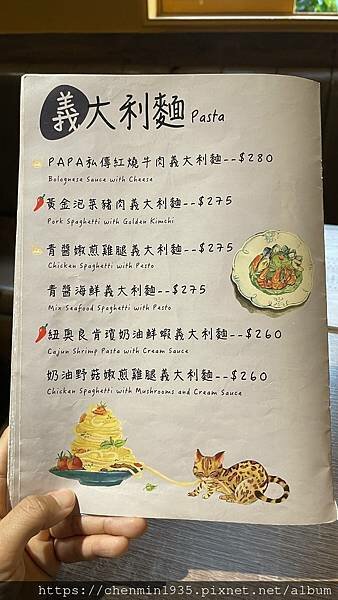 義大利麵 Pasta
PAPA私傳紅燒牛肉義大利麵--$280
Bolognese Sauce with Cheese
黃金泡菜豬肉義大利麵--$275
Pork Spaghetti with Golden Kimchi
青醬嫩煎雞腿義大利麵--$275
Chicken Spaghetti with Pesto
青醬海鮮義大利麵--$275
Mix Seafood Spaghetti with Pesto
紐奧良肯瓊奶油鮮蝦義大利麵--$260
Cajun Shrimp Pasta with Cream Sauce
奶油野菇嫩煎雞腿義大利麵--$260
Chicken Spaghetti with Mushrooms and Cream Sauce
https://chenmin1935.pixnet.net/album